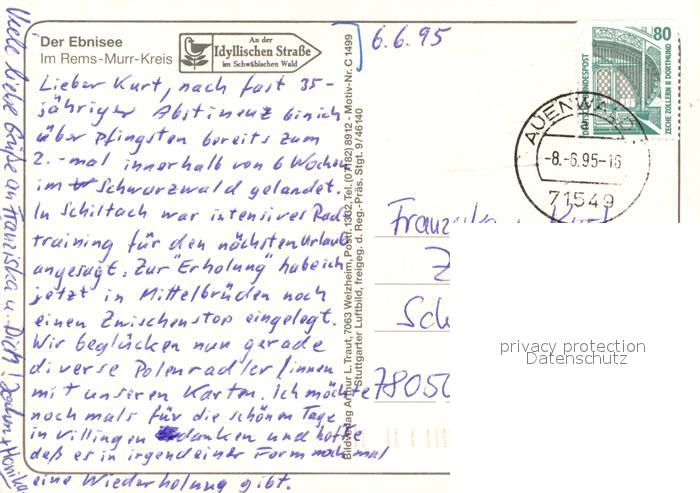 Der Ebnisee
Im Rems-Murr-Kreis
An der
Idyllischen Straße
im Schwäbischen Wald
Lieber Kurt, nach fast 35-
jähriger Abstinenz bin ich
über Pfingsten bereits zum
2.-mal innerhalb von 6 Wochen
im Schwarzwald gelandet.
In Schiltach war intensives Rad
training für den nächsten Urlaub
angesagt. Zur "Erholung" habe ich
jetzt in Mittelbrüden noch
einen Zwischenstop eingelegt.
Wir beglücken nun gerade
diverse Polenradler/innen
mit unseren Karten. Ich möchte
noch mals für die schönen Tage
in Villingen danken und hoffe
daß es in irgendeiner Form noch mal
eine Wiederholung gibt.
Viele liebe Grüße an Franziska u. Dich!
Bildverlag Arthur L. Traut, 7063 Welzheim, Postf. 1303, Tel. (07182) 8912 - Motiv-Nr. C 1499
Stuttgarter Luftbild, freigeg. d. Reg.-Präs. Stgt. 9/46140
6.6.95
80
DEUTSCHE BUNDESPOST
ZECHE ZOLLERN II DORTMUND
AUENWALD
-8.-6.95-16
71549
Franziska u. Kurt
Z
Sch
78050
privacy protection
Datenschutz